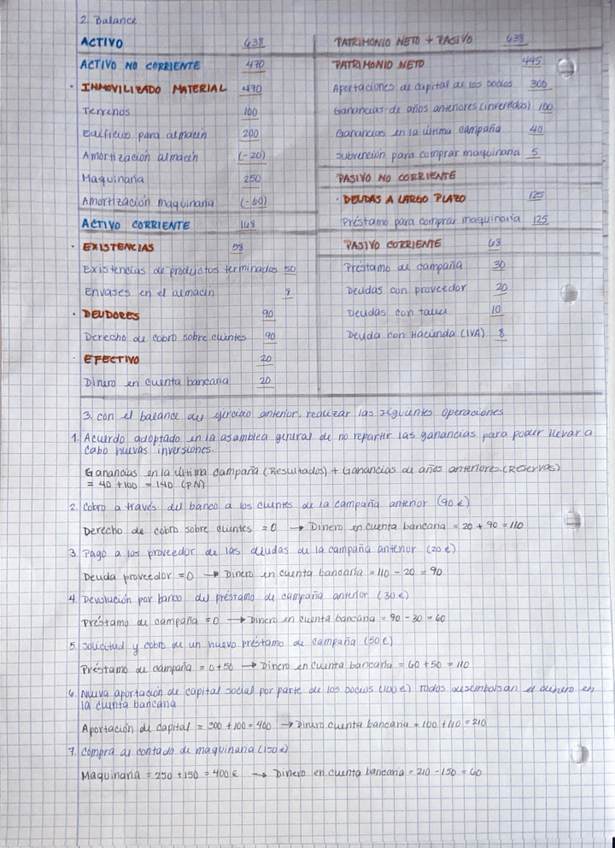 2. Balance
ACTIVO 638
ACTIVO NO CORRIENTE 470
· INMOVILIZADO MATERIAL 470
Terrenos 100
Edificio para almacén 200
Amortización almacén (-20)
Maquinaria 250
Amortización maquinaria (-60)
ACTIVO CORRIENTE 168
· EXISTENCIAS 58
Existencias de productos terminados 50
Envases en el almacén 8
· DEUDORES 90
Derecho de cobro sobre clientes 90
· EFECTIVO 20
Dinero en cuenta bancaria 20
PATRIMONIO NETO + PASIVO 638
PATRIMONIO NETO 445
Aportaciones de capital de los socios 300
Ganancias de años anteriores (invertidas) 100
Ganancias en la última campaña 40
Subvención para comprar maquinaria 5
PASIVO NO CORRIENTE
· DEUDAS A LARGO PLAZO 125
Préstamo para comprar maquinaria 125
PASIVO CORRIENTE 68
Préstamo de campaña 30
Deudas con proveedor 20
Deudas con taller 10
Deuda con Hacienda (IVA) 8
3. Con el balance del ejercicio anterior, realizar las siguientes operaciones
1. Acuerdo adoptado en la asamblea general de no repartir las ganancias para poder llevar a
cabo nuevas inversiones.
Ganancias en la última campaña (Resultados) + Ganancias de años anteriores (Reservas)
= 40 + 100 = 140 (PN)
2. Cobro a través del banco a los clientes de la campaña anterior (90 €)
Derecho de cobro sobre clientes = 0 → Dinero en cuenta bancaria = 20 + 90 = 110
3. Pago a los proveedor de las deudas de la campaña anterior (20 €)
Deuda proveedor = 0 → Dinero en cuenta bancaria = 110 - 20 = 90
4. Devolución por banco del préstamo de campaña anterior (30 €)
Préstamo de campaña = 0 → Dinero en cuenta bancaria = 90 - 30 = 60
5. Solicitud y cobro de un nuevo préstamo de campaña (50 €)
Préstamo de campaña = 0 + 50 → Dinero en cuenta bancaria = 60 + 50 = 110
6. Nueva aportación de capital social por parte de los socios (100 €) Todos desembolsan el dinero en
la cuenta bancaria
Aportación de capital = 300 + 100 = 400 → Dinero cuenta bancaria = 100 + 110 = 210
7. Compra al contado de maquinaria (150 €)
Maquinaria = 250 + 150 = 400 € → Dinero en cuenta bancaria = 210 - 150 = 60